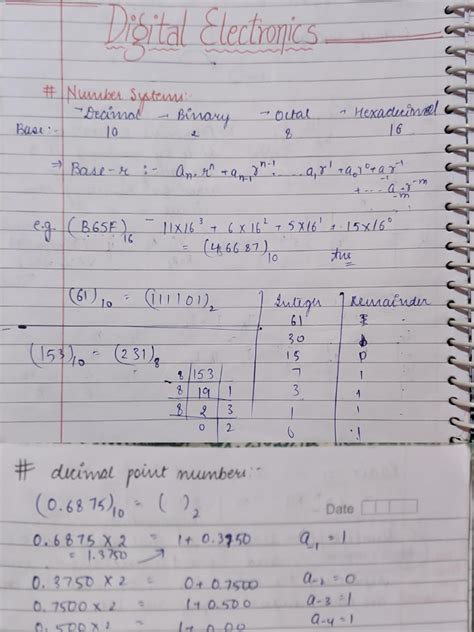 Digital Electronics
# Number Systems:-
→ Decimal → Binary → Octal → Hexadecimal
Base:- 10 2 8 16
⇒ Base-r :- aₙ rⁿ + aₙ₋₁ rⁿ⁻¹ .... a₁r¹ + a₀r⁰ + a r⁻¹
+ --- a₋ₘ r⁻ᵐ
e.g. (B65F)₁₆ = 11×16³ + 6×16² + 5×16¹ + 15×16⁰
= (46687)₁₀ Ans
(61)₁₀ = (111101)₂ Integer Remainder
61
30
(153)₁₀ = (231)₈ 15 0
8 153 7 1
8 19 1 3 1
8 2 3 1 1
0 2 0 1
# decimal point numbers:-
(0.6875)₁₀ = ( )₂ Date
0.6875 × 2 = 1 + 0.3750 a₋₁ = 1
= 1.3750
0.3750 × 2 = 0 + 0.7500 a₋₂ = 0
0.7500 × 2 = 1 + 0.500 a₋₃ = 1
0.500 × 2 = 1 + 0.00 a₋₄ = 1